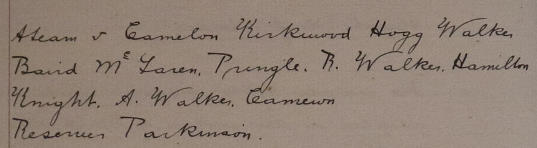 A team v Camelon Kirkwood Hogg Walker
Baird McLaren, Pringle. R. Walker. Hamilton
Knight. A. Walker. Cameron
Reserves Parkinson.